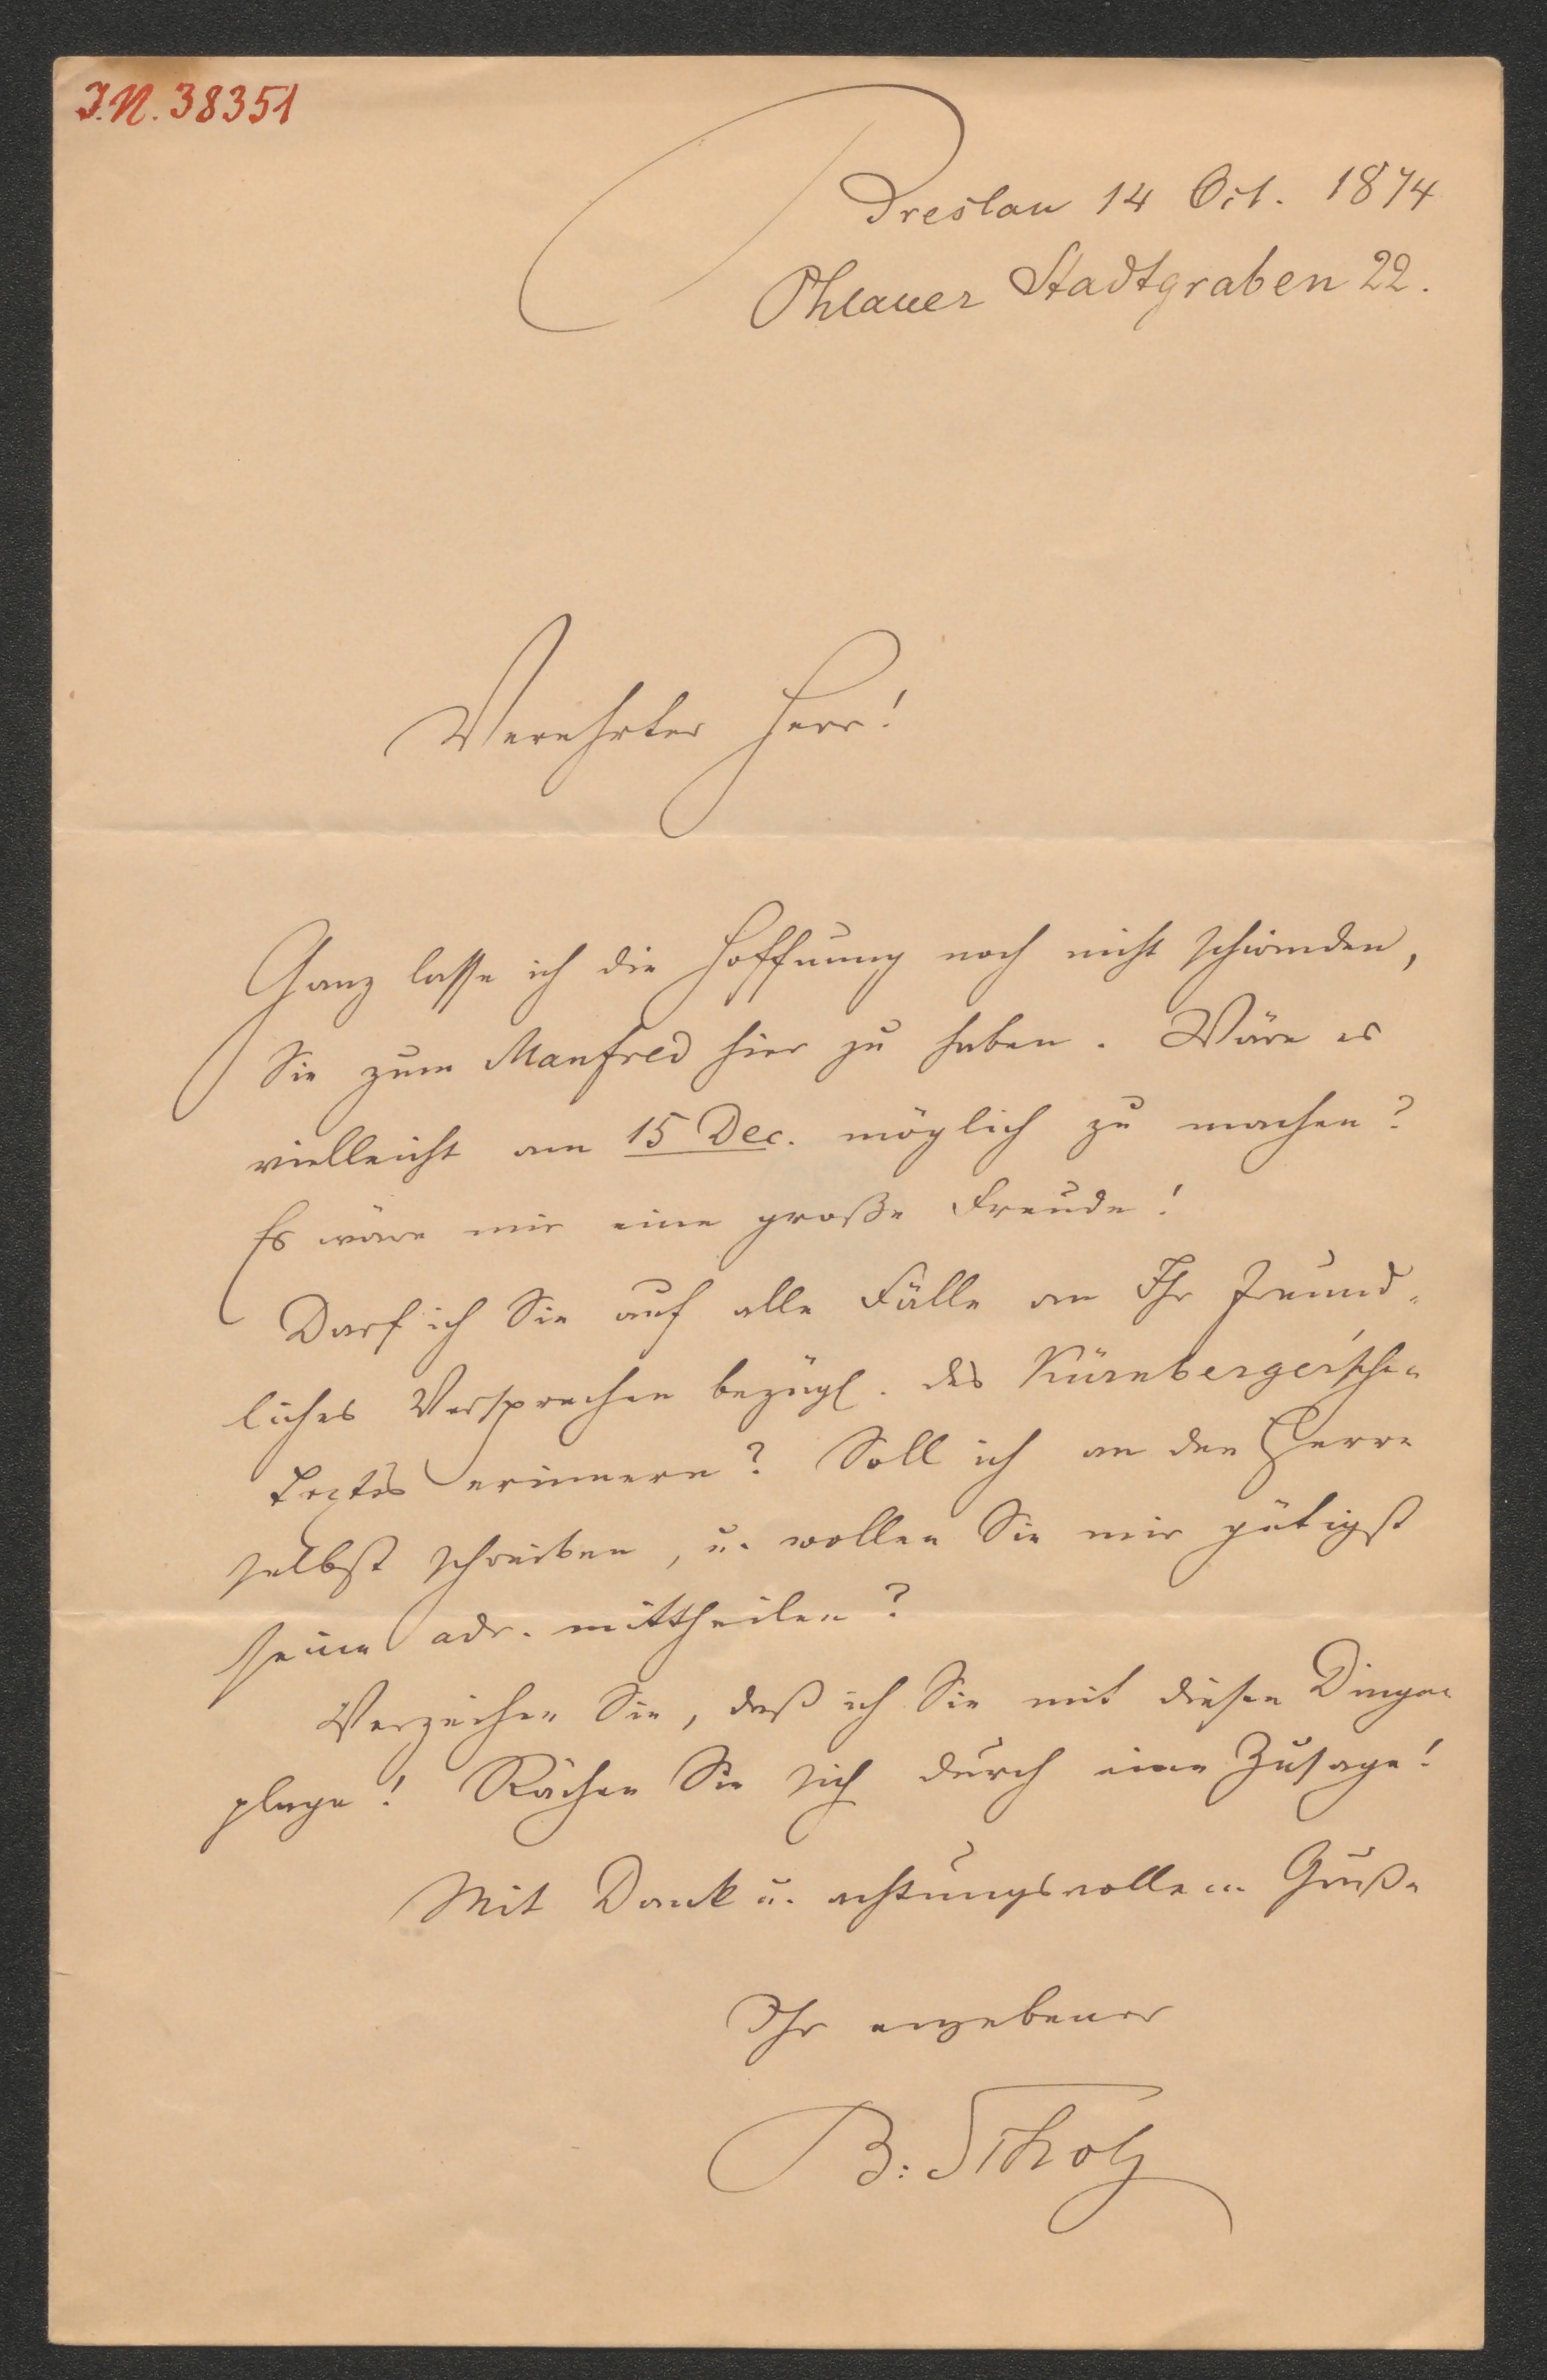 I.N. 38351
Breslau 14 Oct. 1874
Ohlauer Stadtgraben 22.
Verehrter Herr!
Ganz lasse ich die Hoffnung noch nicht schwinden,
Sie zum Manfred hier zu haben. Wäre es
vielleicht am 15 Dec. möglich zu machen?
Es wäre mir eine große Freude!
Darf ich Sie auf alle Fälle an Ihr freund-
liches Versprechen bezügl. des Kürnberger'schen
Textes erinnern? Soll ich an den Herrn
selbst schreiben, u. wollen Sie mir gütigst
seine Adr. mittheilen?
Verzeihen Sie, daß ich Sie mit diesen Dingen
plage! Rächen Sie sich durch eine Zusage!
Mit Dank u. achtungsvollem Gruße
Ihr ergebener
B. Scholz